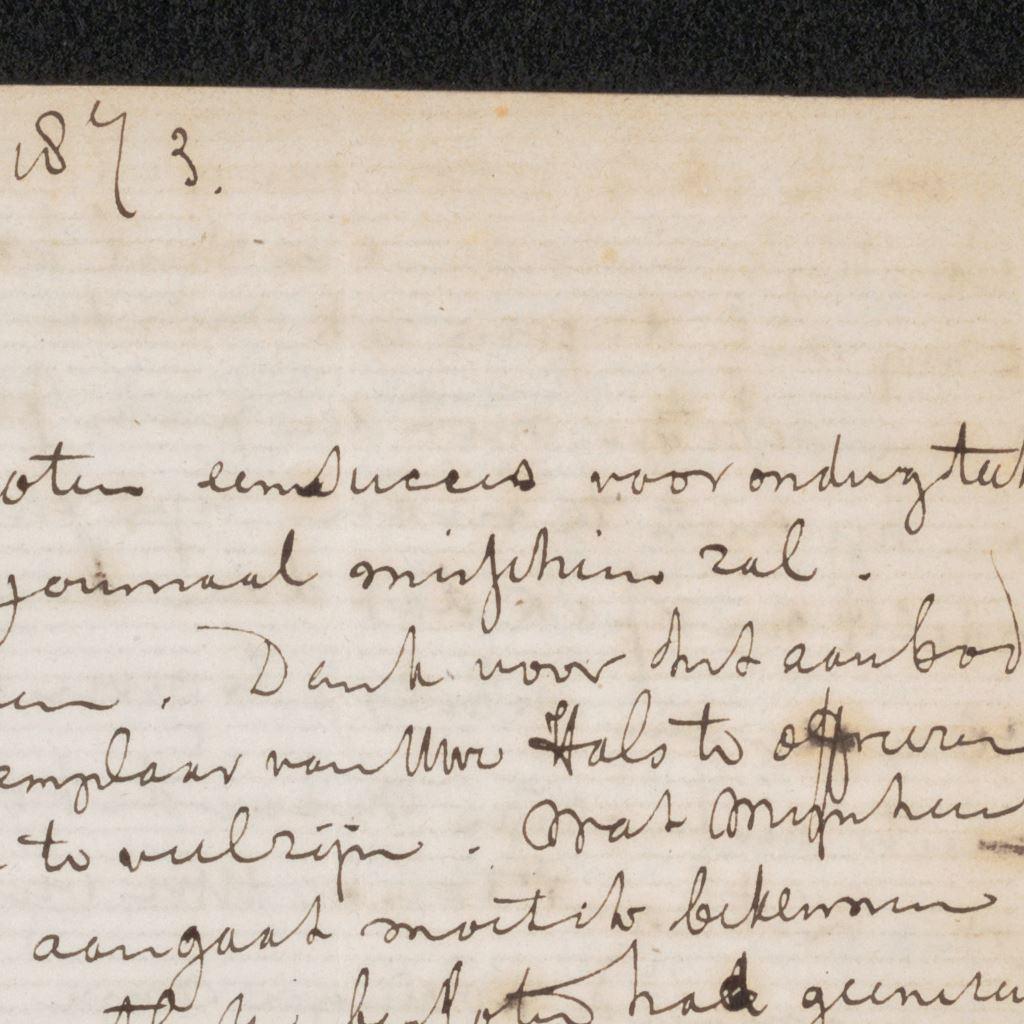 1873.
oten een succes voor ondergetek
journaal misschien zal .
en . Dank voor het aanbod
emplaar van Uwe Hals te offreeren
te veel zijn . Wat Mijnheer
aangaat moet ik bekennen
besloten had geenszin